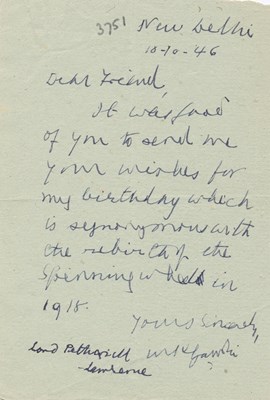 3751 New Delhi
10-10-46
Dear Friend,
It was good
of you to send me
your wishes for
my birthday which
is synonymous with
the rebirth of the
Spinning wheel in
1918.
Yours sincerely,
Lord Pethwick MKGandhi
-Lawrence